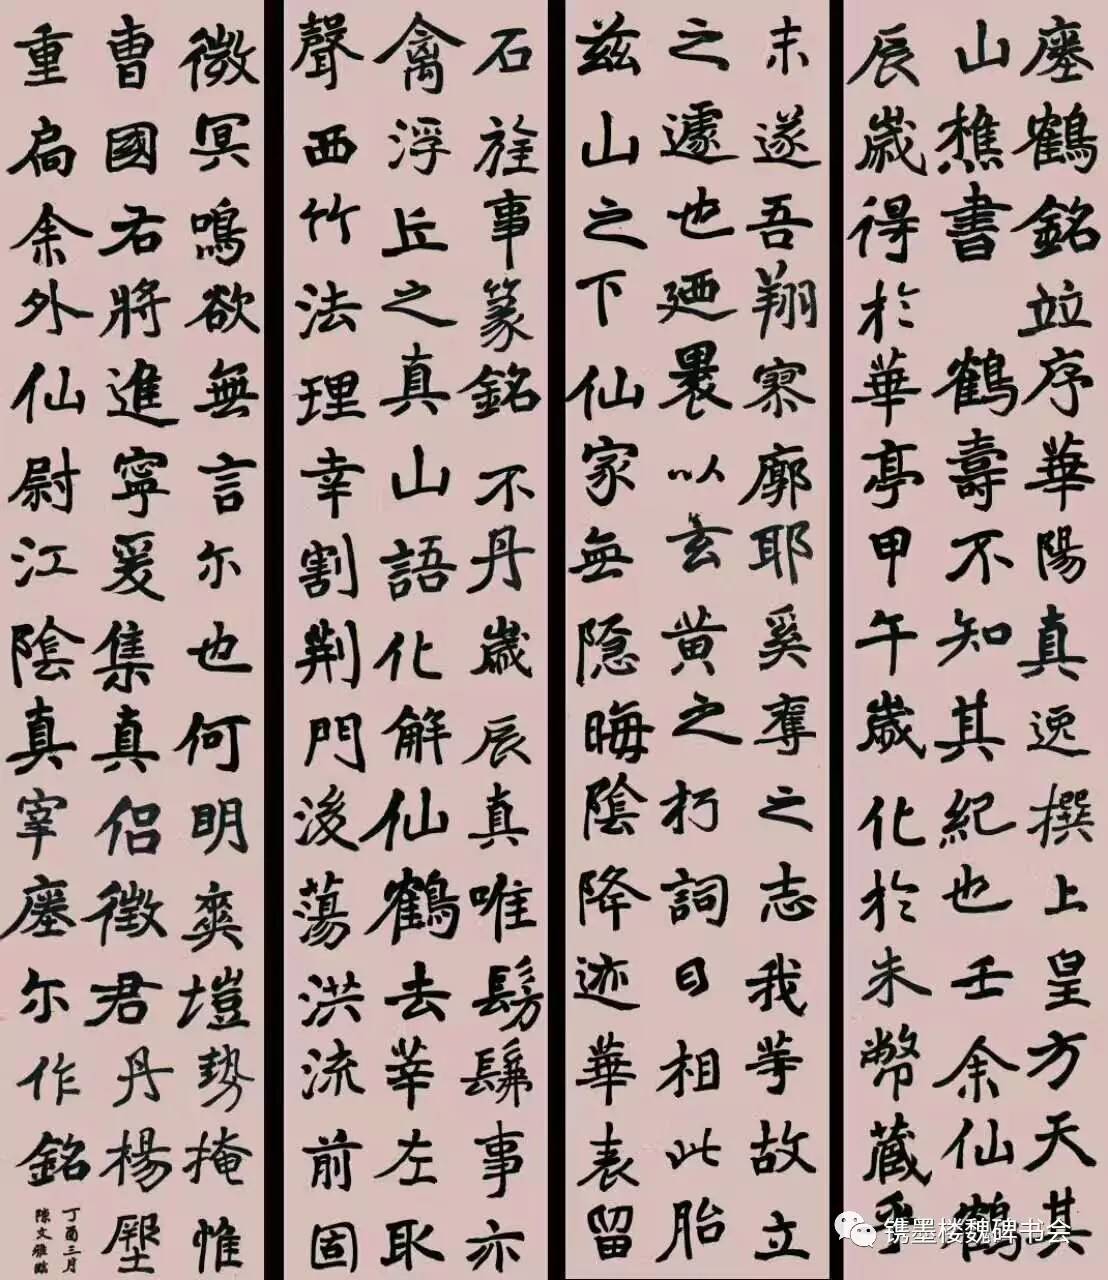 瘞鶴銘竝序華陽真逸撰上皇方天其
山樵書 鶴壽不知其紀也壬余仙鶴
辰歲得於華亭甲午歲化於朱幣藏乎
未遂吾翔寥廓耶奚奪之志我等故立
之遽也廼裹以玄黄之朽詞曰相此胎
兹山之下仙家無隐晦陰降迹華表留
石旌事篆銘不丹歲辰真唯髣髴事亦
禽浮丘之真山語化解仙鶴去莘左取
聲西竹法理幸割荆門後蕩洪流前固
微冥鳴欲無言尔也何明爽塏勢掩惟
曹國右將進寧爰集真侣徵君丹楊
重扃余外仙尉江陰真宰瘞尔作銘
丁酉三月
陳文雅臨
镌墨楼魏碑书会